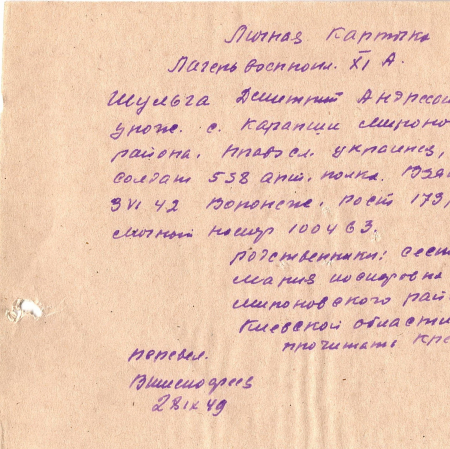 Личная Карточка
Лагерь военнопл. XI А.
Шульга Дмитрий Андреев
урож. с. Карапыши Мироно
района. Правосл. украинец,
солдат 538 арт. полка. Взя
3 VI 42 Воронеж. рост 173,
личный номер 100463.
родственники: сест
Мария
Мироновского рай
Киевской области
прочитать кра
перевел.
28 IX 49